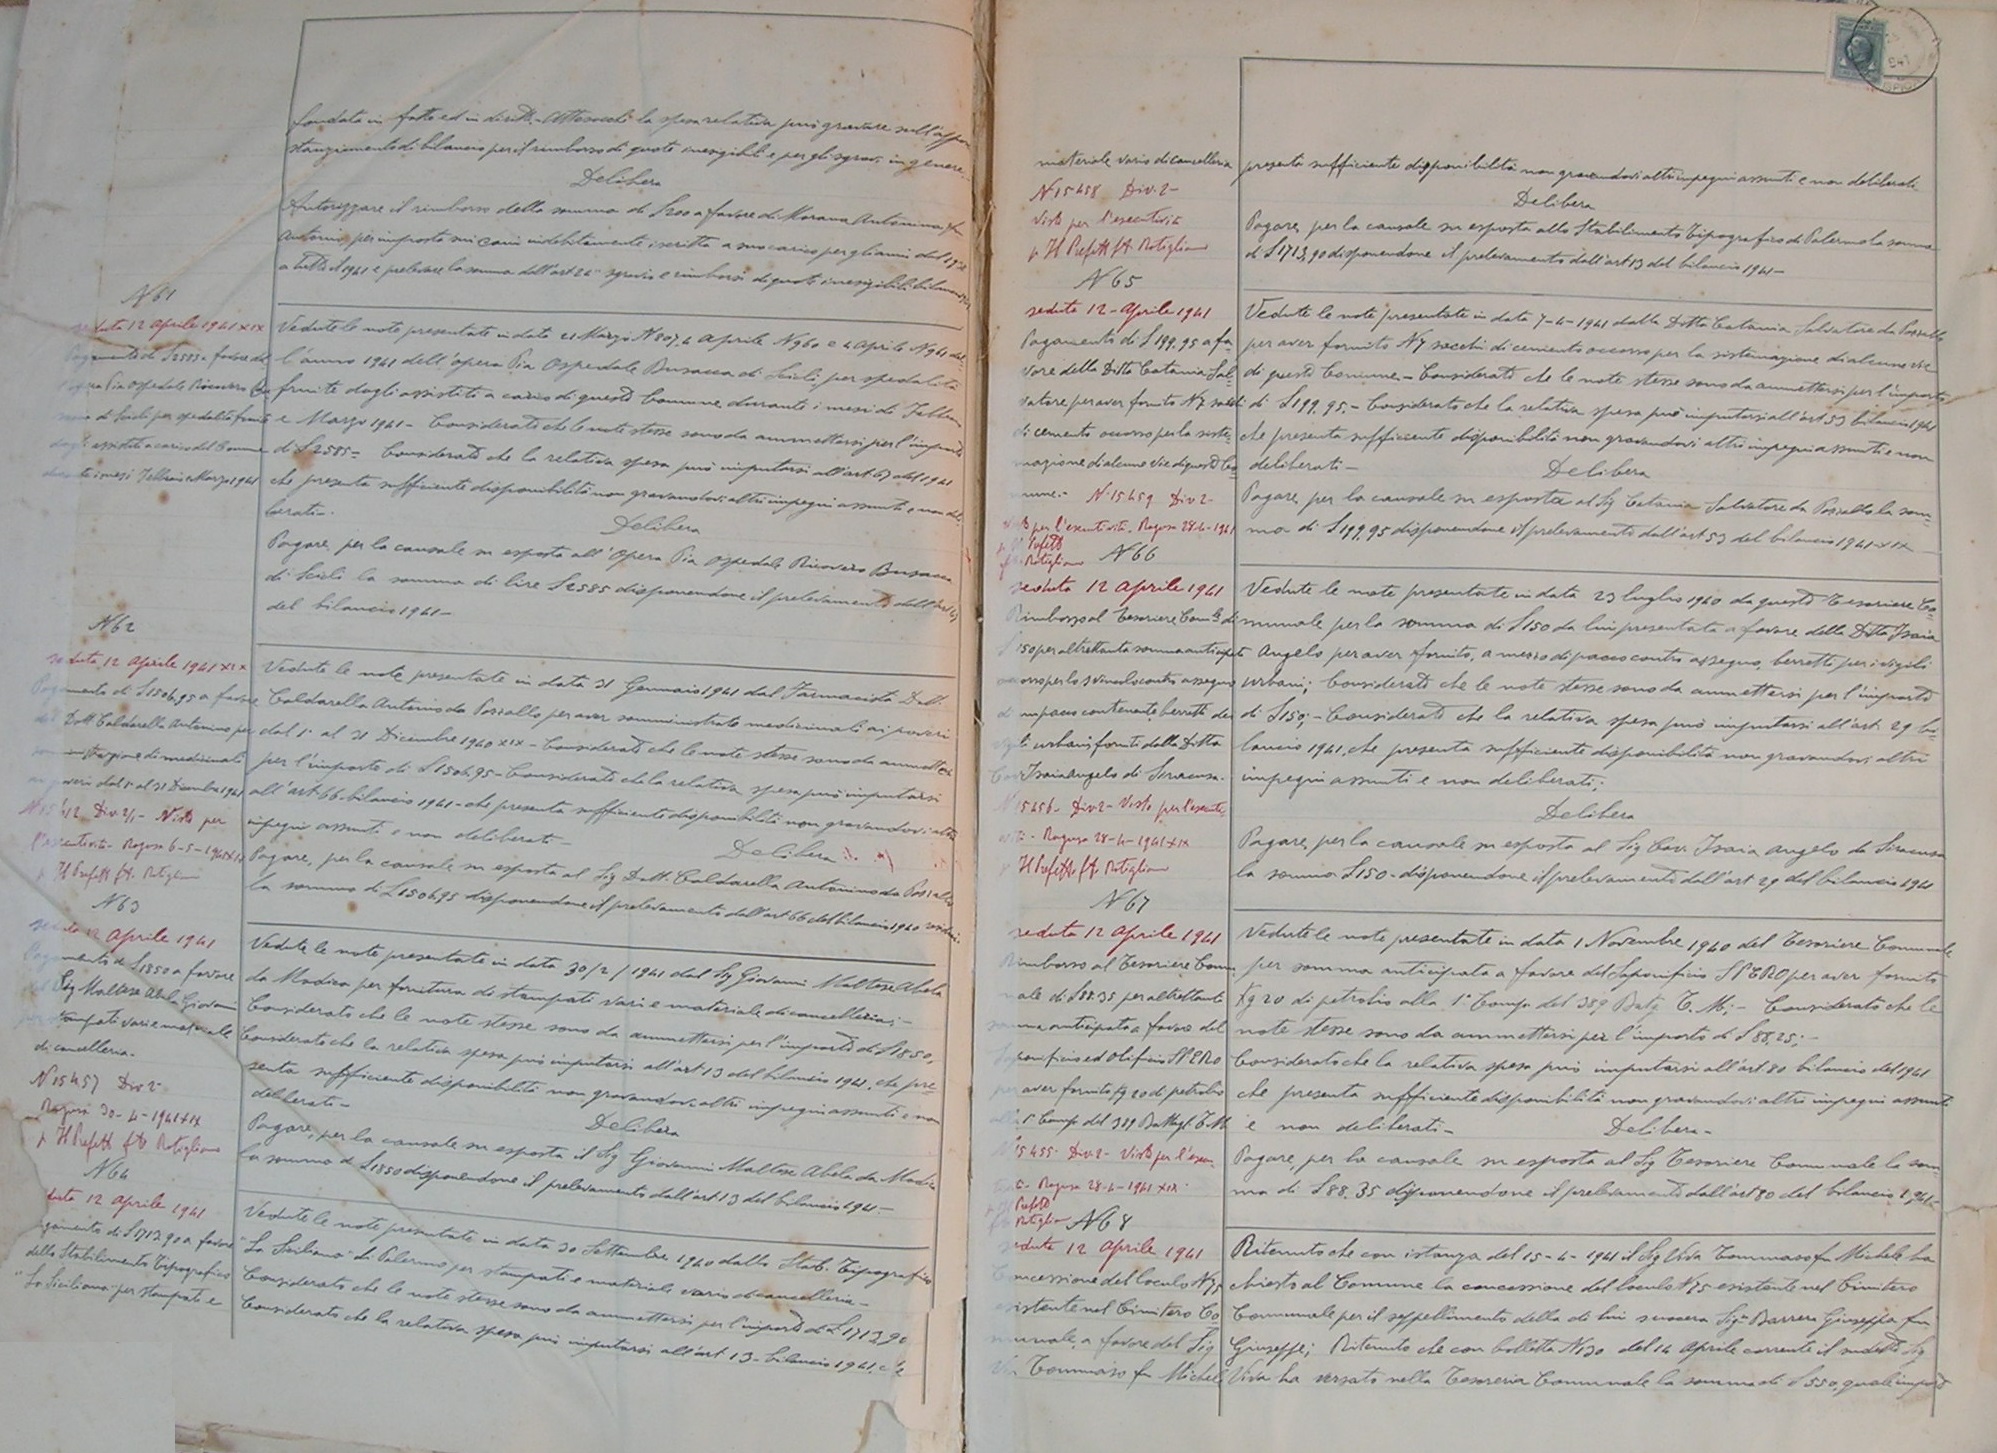 fondata in fatto ed in diritto. Attesochè la spesa relativa può gravare sull'appo
stanziamento di bilancio per il rimborso di quote inesigibili e per gli sgravi in genere.
Delibera
Autorizzare il rimborso della somma di £200 a favore di Morana Antonina fu
Antonio, per imposta sui cani indebitamente iscritta a suo carico per gli anni dal
a tutto il 1941 e prelevare la somma dall'art 24 sgravi e rimborsi di quote inesigibili bilancio
N 61
seduta 12 Aprile 1941 XIX
Pagamento di £2585 a favore del
l'opera Pia Ospedale Ricovero Bu
sacca di Scicli per spedalità fruite
dagli assistiti a carico del Comune
durante i mesi Febbraio e Marzo 1941
Vedute le note presentate in data 21 Marzo N 807, 4 Aprile N 960 e 4 Aprile N 961 del
l'anno 1941 dell'opera Pia Ospedale Busacca di Scicli, per spedalità
fruite dagli assistiti a carico di questo Comune durante i mesi di Febbra
e Marzo 1941 - Considerato che le note stesse sono da ammettersi per l'importo
di £2585 = Considerato che la relativa spesa può imputarsi all'art 67 del 1941
che presenta sufficiente disponibilità non gravandovi altri impegni assunti e non del
berati -
Delibera
Pagare, per la causale su esposta all'Opera Pia Ospedale Ricovero Busacca
di Scicli la somma di lire £2585 disponendone il prelevamento dall'art 67
del bilancio 1941 -
N 62
seduta 12 Aprile 1941 XIX
Pagamento di £1506,95 a favore
del Dott. Caldarella Antonino per
somministrazione di medicinali
ai poveri dal 1° al 31 Dicembre 1941
N 15412 Div. 2/1 - Visto per
l'esecutività - Ragusa 6-5-1941 XIX
p. Il Prefetto f.to Rotigliano
Vedute le note presentate in data 31 Gennaio 1941 dal Farmacista Dott.
Caldarella Antonino da Pozzallo per aver somministrato medicinali ai poveri
dal 1° al 31 Dicembre 1940 XIX - Considerato che le note stesse sono da ammettersi
per l'importo di £1506,95 - Considerato che la relativa spesa può imputarsi
all'art 66 bilancio 1941 - che presenta sufficiente disponibilità non gravandovi altri
impegni assunti e non deliberati -
Delibera
Pagare, per la causale su esposta al Sig Dott. Caldarella Antonino da Pozzallo
la somma di £1506,95 disponendone il prelevamento dall'art 66 del bilancio 1940
N 63
seduta 12 Aprile 1941
Pagamento di £1850 a favore
del Sig Maltese Abela Giovanni
per stampati vari e materiale
di cancelleria.
N 15457 Div 2-
Ragusa 30-4-1941 XIX
p. Il Prefetto f.to Rotigliano
Vedute le note presentate in data 30/2/1941 dal Sig Giovanni Maltese Abela
da Modica per fornitura di stampati vari e materiale di cancelleria; -
Considerato che le note stesse sono da ammettersi per l'importo di £1850,
Considerato che la relativa spesa può imputarsi all'art 13 del bilancio 1941, che pre-
senta sufficiente disponibilità non gravandovi altri impegni assunti e non
deliberati -
Delibera
Pagare, per la causale su esposta il Sig Giovanni Maltese Abela da Modica
la somma di £1850 disponendone il prelevamento dall'art 13 del bilancio 1941 -
N 64
seduta 12 Aprile 1941
Pagamento di £1713,90 a favore
dello Stabilimento Tipografico
"Lo Siciliano" per stampati e
Vedute le note presentate in data 30 Settembre 1940 dallo Stab. Tipografico
"Lo Siciliano" di Palermo per stampati e materiale vario di cancelleria -
Considerato che le note stesse sono da ammettersi per l'importo di £1713,90
Considerato che la relativa spesa può imputarsi all'art 13 - bilancio 1941, che
materiale vario di cancelleria
N 15458 Div. 2 -
Visto per l'esecutività
p. Il Prefetto f.to Rotigliano
presenta sufficiente disponibilità non gravandovi altri impegni assunti e non deliberati.
Delibera
Pagare, per la causale su esposta allo Stabilimento Tipografico di Palermo la somma
di £1713,90 disponendone il prelevamento dall'art 13 del bilancio 1941 -
N 65
seduta 12 - Aprile 1941
Pagamento di £199,95 a fa-
vore della Ditta Catania Sal-
vatore per aver fornito N 7 sacchi
di cemento occorso per la siste-
mazione di alcune vie di questo Co-
mune. - N. 15459 Div 2 -
Visto per l'esecutività - Ragusa 28-4-1941
p. Il Prefetto
f.to Rotigliano
Vedute le note presentate in data 7-4-1941 dalla Ditta Catania Salvatore da Pozzallo
per aver fornito N 7 sacchi di cemento occorso per la sistemazione di alcune vie
di questo Comune - Considerato che le note stesse sono da ammettersi per l'importo
di £199,95 - Considerato che la relativa spesa può imputarsi all'art 53 bilancio 1941
che presenta sufficiente disponibilità non gravandovi altri impegni assunti e non
deliberati -
Delibera
Pagare, per la causale su esposta al Sig Catania Salvatore da Pozzallo la som-
ma di £199,95 disponendone il prelevamento dall'art 53 del bilancio 1941 - XIX
N 66
seduta 12 Aprile 1941
Rimborso al Tesoriere Com.le di
£150 per altrettanta somma anticipata
occorso per lo svincolo contro assegno
di un pacco contenente berretti dei
vigili urbani forniti dalla Ditta
Cav. Isaia Angelo di Siracusa.
N 15456 - Div 2 - Visto per l'esecuti-
vità - Ragusa 28-4-1941 XIX
p. Il Prefetto f.to Rotigliano
Vedute le note presentate in data 23 luglio 1940 da questo Tesoriere Co-
munale per la somma di £150 da lui presentata a favore della Ditta Isaia
Angelo per aver fornito, a mezzo di pacco contro assegno, berretti per i vigili
urbani; Considerato che le note stesse sono da ammettersi per l'importo
di £150; - Considerato che la relativa spesa può imputarsi all'art. 29 bi-
lancio 1941, che presenta sufficiente disponibilità non gravandovi altri
impegni assunti e non deliberati;
Delibera
Pagare, per la causale su esposta al Sig Cav. Isaia Angelo da Siracusa
la somma £150 - disponendone il prelevamento dall'art 29 del bilancio 1941
N 67
seduta 12 Aprile 1941
Rimborso al Tesoriere Comu
nale di £88.35 per altrettanta
somma anticipata a favore del
Saponificio ed Oleificio SPERO
per aver fornito Kg 20 di petrolio
alla 1ª Comp. del 389 Battagl. T.M.
N 15455 - Div 2 - Visto per l'esecu-
- Ragusa 28-4-1941 XIX
Prefetto
Rotigliano
Vedute le note presentate in data 1 Novembre 1940 del Tesoriere Comunale
per somma anticipata a favore del Saponificio SPERO per aver fornito
Kg 20 di petrolio alla 1ª Comp. del 389 Batg. T. M; - Considerato che le
note stesse sono da ammettersi per l'importo di £88,25; -
Considerato che la relativa spesa può imputarsi all'art 80 bilancio del 1941
che presenta sufficiente disponibilità non gravandovi altri impegni assunti
e non deliberati -
Delibera -
Pagare, per la causale su esposta al Sig Tesoriere Comunale la som-
ma di £88,35 disponendone il prelevamento dall'art 80 del bilancio 1941 -
N 68
seduta 12 Aprile 1941
Concessione del loculo N 75
esistente nel Cimitero Co
munale, a favore del Sig
Viva Tommaso fu Michele
Ritenuto che con istanza del 15-4-1941 il Sig Viva Tommaso fu Michele ha
chiesto al Comune la concessione del loculo N 75 esistente nel Cimitero
Comunale per il seppellimento della di lui suocera Sig.ra Barrera Giuseppa fu
Giuseppe; Ritenuto che con bolletta N 130 del 14 Aprile corrente il sudetto Sig
Viva ha versato nella Tesoreria Comunale la somma di £550, quale importo